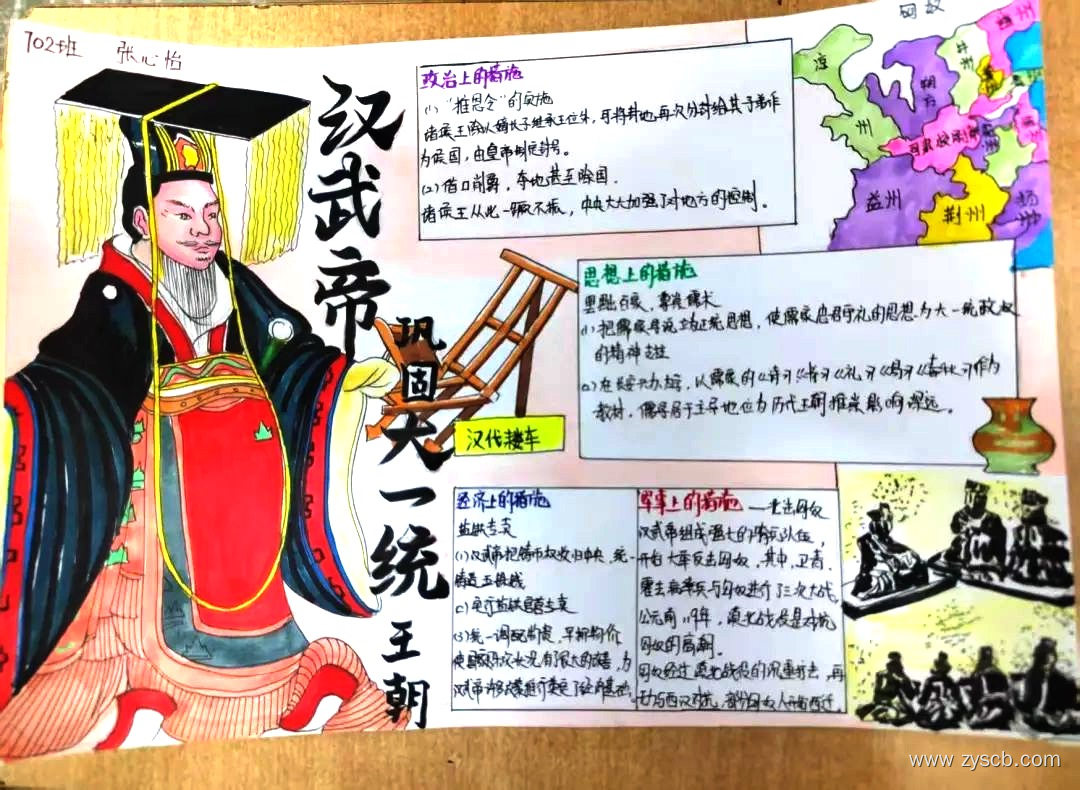 702班 张心怡
汉武帝
巩固大一统王朝
政治上的措施
(1)"推恩令"的实施
诸侯王除以嫡长子继承王位外，可将封地再次分封给其子弟作
为侯国，由皇帝制定封号。
(2)借口削爵，夺地甚至除国.
诸侯王从此一蹶不振，中央大大加强了对地方的控制。
匈奴
凉
州
朔
方
并
州
益州
荆州
思想上的措施
罢黜百家，尊崇儒术
(1)把儒家学说立为正统思想，使儒家忠君守礼的思想为大一统政权
的精神支柱
(2)在长安兴办太学，以儒家的《诗》《书》《礼》《易》《春秋》作为
教材，儒学居于主导地位为历代王朝推崇影响深远。
汉代耧车
经济上的措施
盐铁专卖
(1)汉武帝把铸币权收归中央，统一
铸造五铢钱
(2)实行盐铁官营专卖
(3)统一调配物资，平抑物价
使国家财政状况有很大的改善，为
汉武帝许多政策推行奠定了经济基础
军事上的措施——北击匈奴
汉武帝组成强大的骑兵队伍，
开始大举反击匈奴，其中，卫青、
霍去病率兵与匈奴进行了三次大战，
公元前119年，漠北战役是对抗
匈奴的高潮.
匈奴经过漠北战役的沉重打击，再
无力与西汉对抗，部分匈奴人开始西迁.
www.zyscb.com